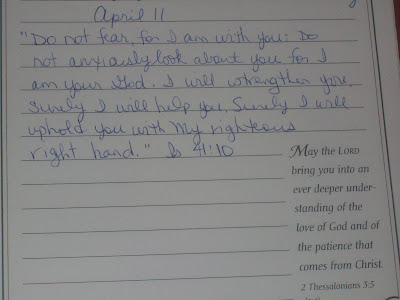 April 11
"Do not fear, for I am with you: Do
not anxiously look about you for I
am your God. I will strengthen you,
Surely I will help you, Surely I will
uphold you with My righteous
right hand." Is 41:10
May the LORD
bring you into an
ever deeper under-
standing of the
love of God and of
the patience that
comes from Christ.
2 Thessalonians 3:5